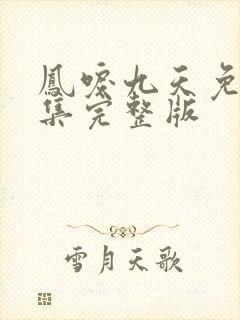 鳳唳九天免
集完整版
雪月天歌